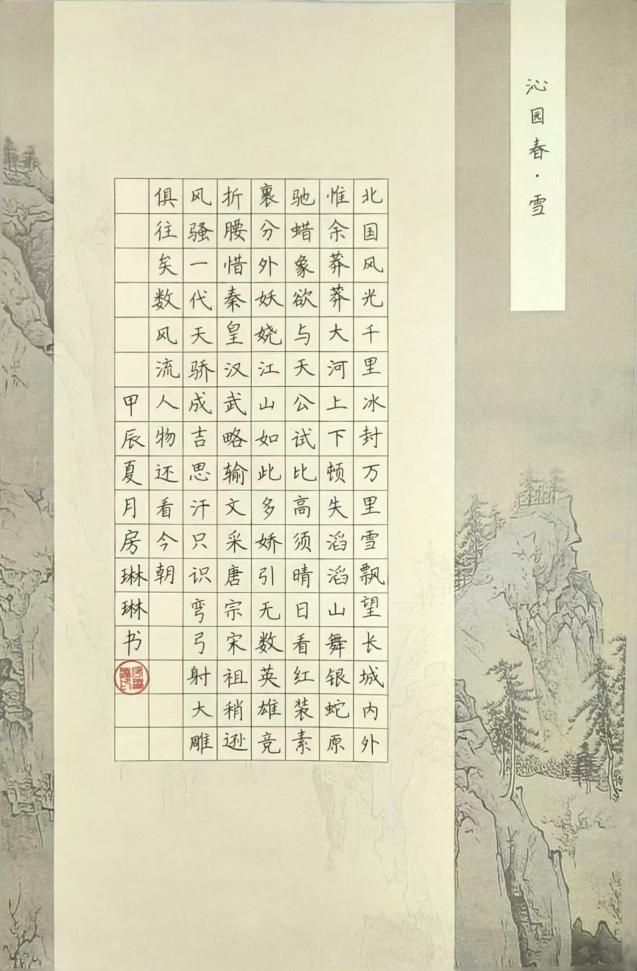 沁园春·雪
北国风光千里冰封万里雪飘望长城内外
惟余莽莽大河上下顿失滔滔山舞银蛇原
驰蜡象欲与天公试比高须晴日看红装素
裹分外妖娆江山如此多娇引无数英雄竞
折腰惜秦皇汉武略输文采唐宗宋祖稍逊
风骚一代天骄成吉思汗只识弯弓射大雕
俱往矣数风流人物还看今朝
甲辰夏月房琳琳书